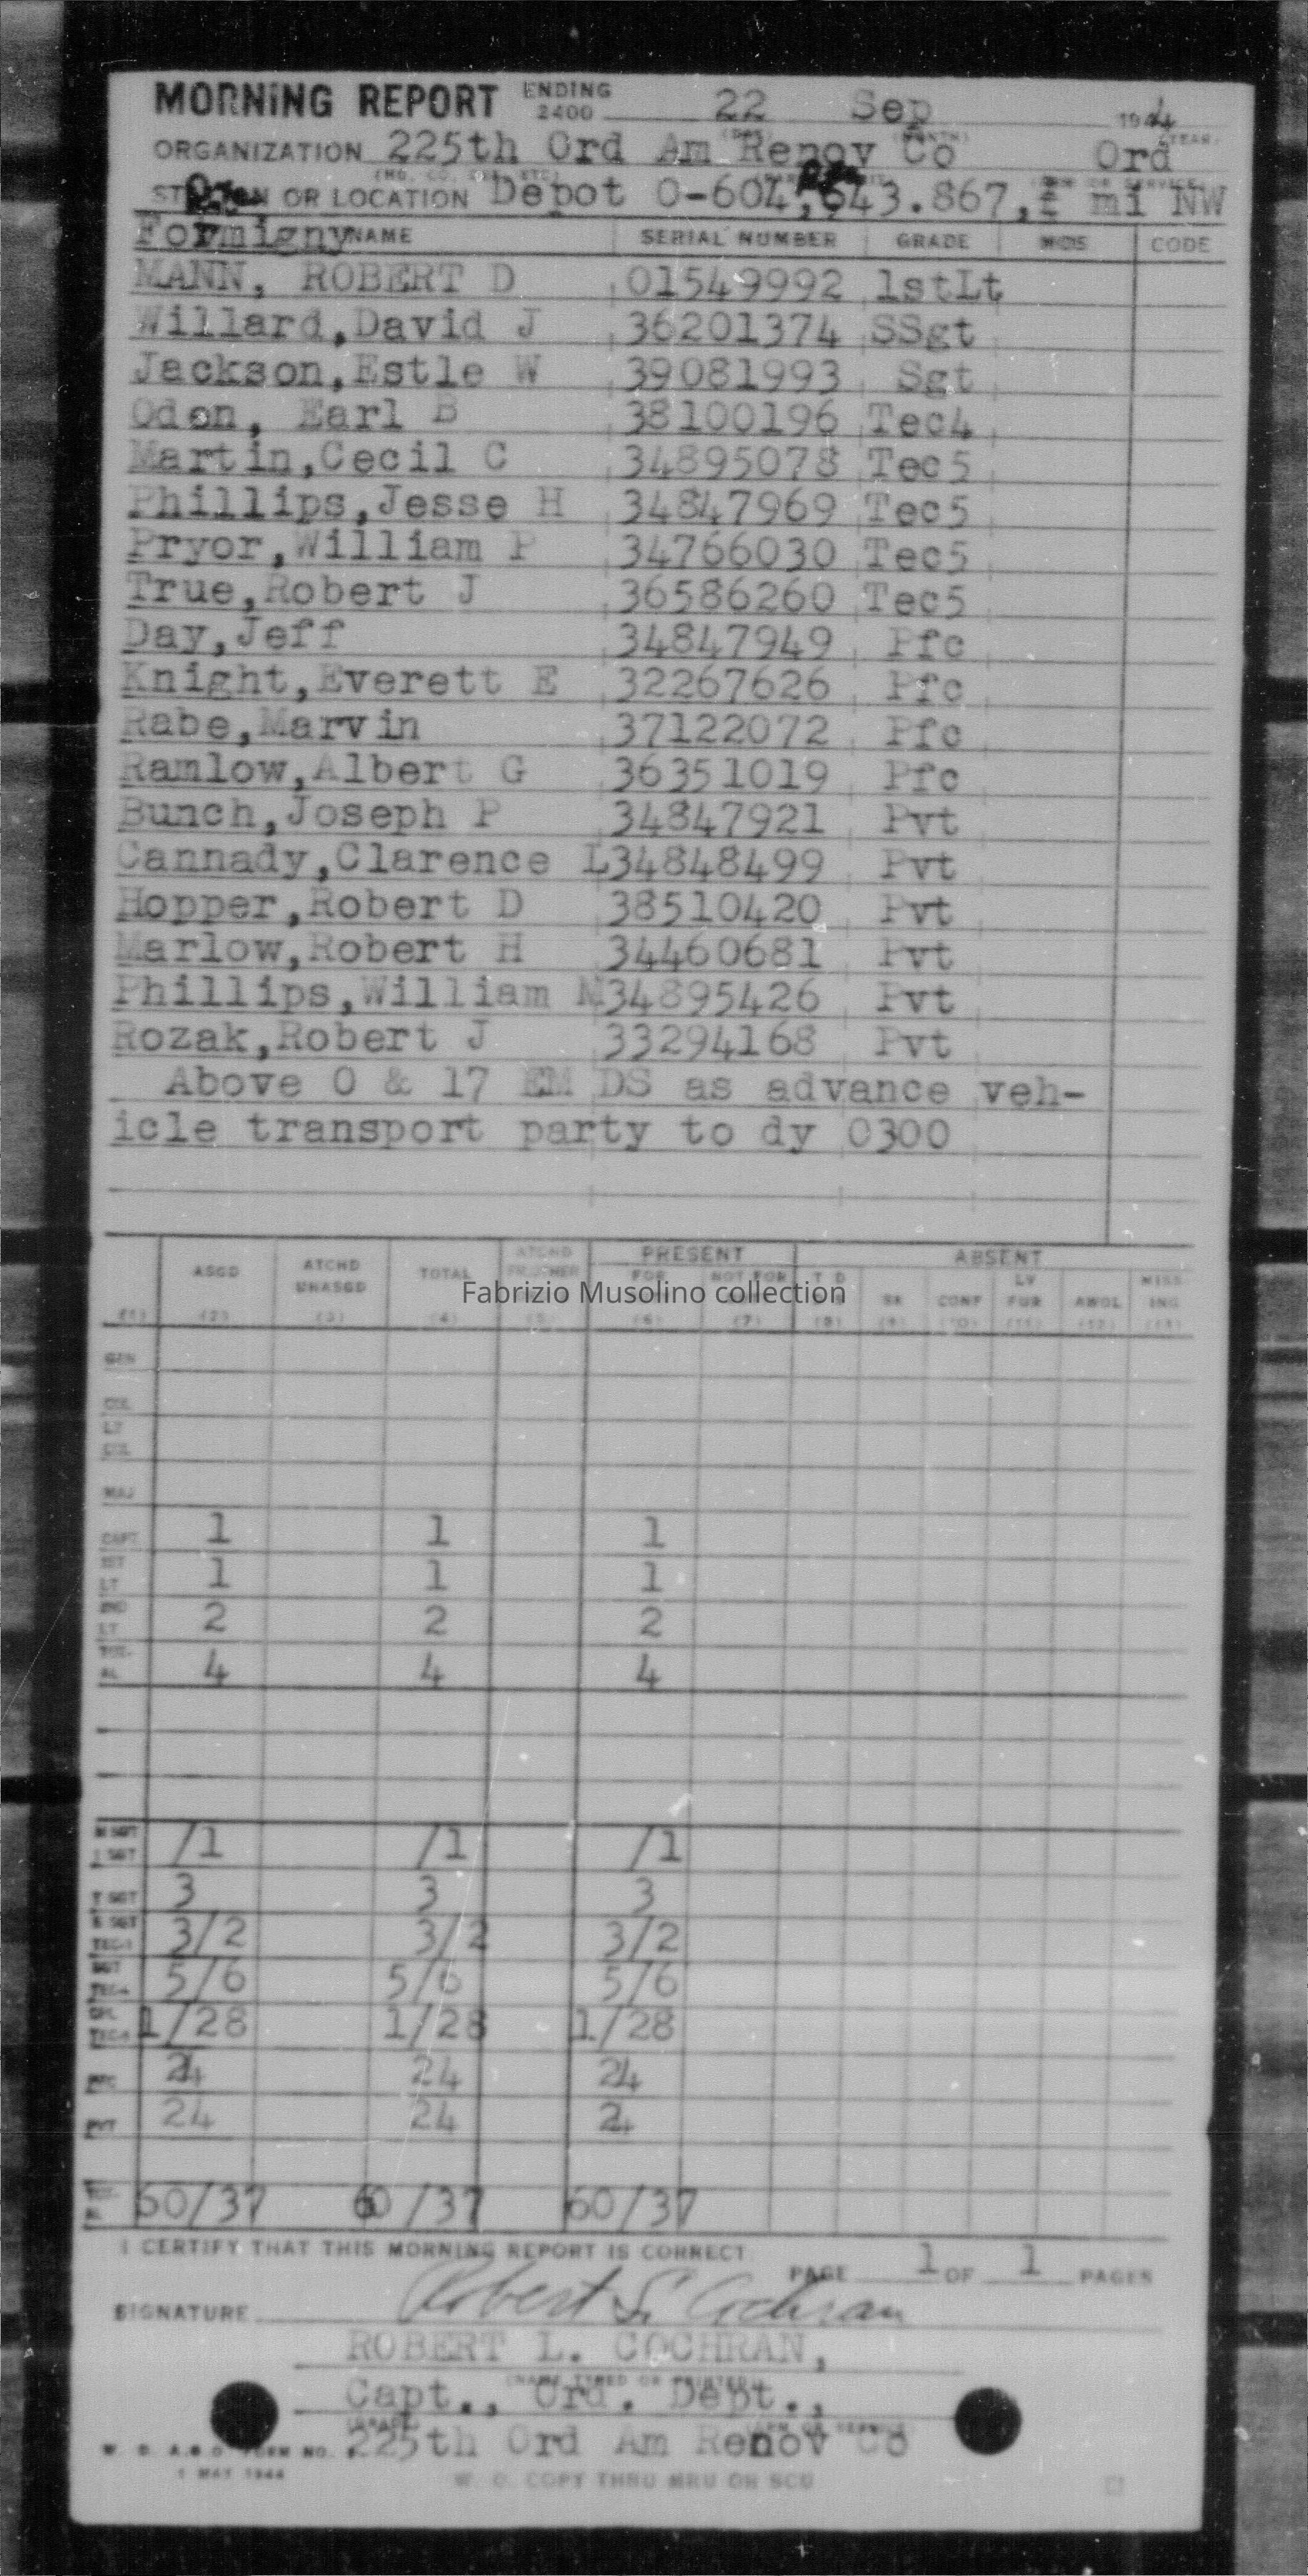 MORNING REPORT ENDING 2400 22 Sep 1944
ORGANIZATION 225th Ord Am Renov Co Ord
OR LOCATION Depot 0-604, 643.867, mi NW
Formigny NAME SERIAL NUMBER GRADE MOS CODE
MANN, ROBERT D 01549992 1stLt
Willard,David J 36201374 SSgt
Jackson,Estle W 39081993 Sgt
Oden, Earl B 38100196 Tec4
Martin,Cecil C 34895078 Tec5
Phillips,Jesse H 34847969 Tec5
Pryor,William P 34766030 Tec5
True,Robert J 36586260 Tec5
Day,Jeff 34847949 Pfc
Knight,Everett E 32267626 Pfc
Rabe,Marvin 37122072 Pfc
Ramlow,Albert G 36351019 Pfc
Bunch,Joseph P 34847921 Pvt
Cannady,Clarence L 34848499 Pvt
Hopper,Robert D 38510420 Pvt
Marlow,Robert H 34460681 Pvt
Phillips,William M 34895426 Pvt
Rozak,Robert J 33294168 Pvt
Above O & 17 EM DS as advance veh-
icle transport party to dy 0300
PRESENT ABSENT
ASGD ATCHD UNASGD TOTAL ATCHD FOR NOT FOR T D SK CONF LV FUR AWOL MISS ING
Fabrizio Musolino collection
(1) (2) (3) (4) (5) (6) (7) (8) (9) (10) (11) (12) (13)
GEN
COL
LT COL
MAJ
CAPT 1 1 1
1ST LT 1 1 1
2ND LT 2 2 2
TOT- AL 4 4 4
M SGT 1 SGT /1 /1 /1
T SGT 3 3 3
S SGT TEC3 3/2 3/2 3/2
SGT TEC4 5/6 5/6 5/6
CPL TEC5 1/28 1/28 1/28
PFC 24 24 24
PVT 24 24 24
60/37 60/37 60/37
I CERTIFY THAT THIS MORNING REPORT IS CORRECT
PAGE 1 OF 1 PAGES
SIGNATURE Robert L. Cochran
ROBERT L. COCHRAN,
(NAME TYPED OR PRINTED)
Capt., Ord. Dept.,
(GRADE) (ARM OR SERVICE)
225th Ord Am Renov Co
W. D. A.G.O. FORM NO.
1 MAY 1944
W. D. COPY THRU MRU OR SCU